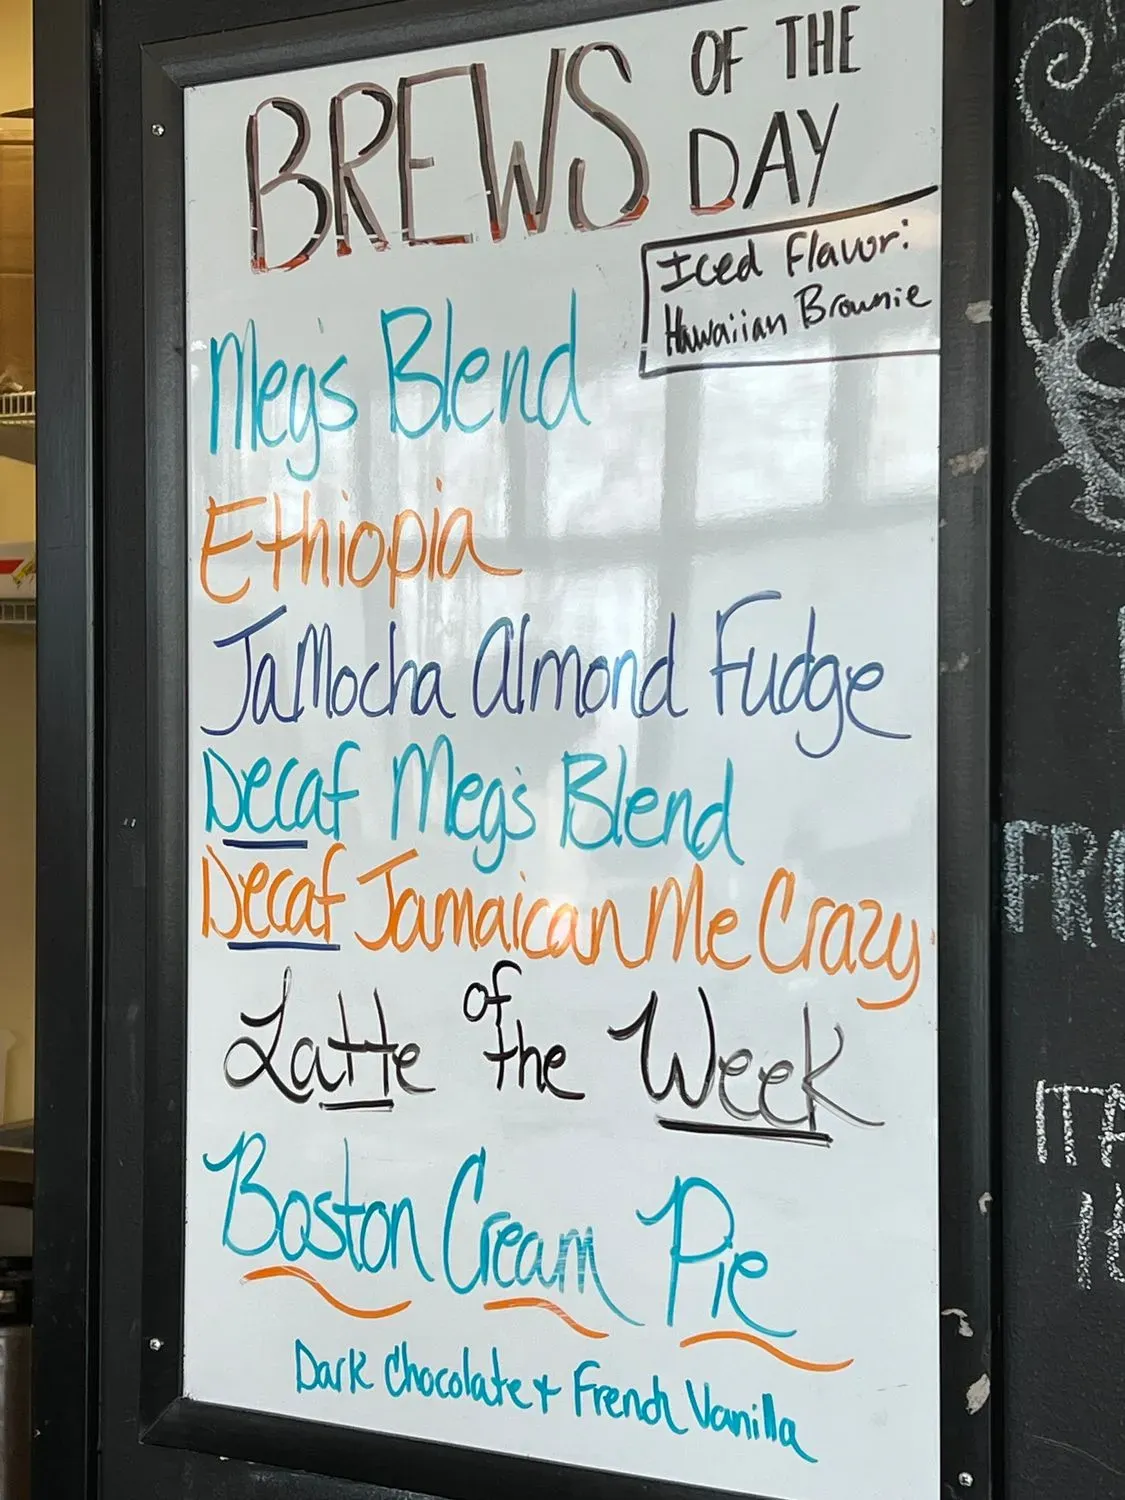 BREWS OF THE DAY
Iced Flavor:
Hawaiian Brownie
Meg's Blend
Ethiopia
JaMocha Almond Fudge
Decaf Meg's Blend
Decaf Jamaican Me Crazy
Latte of the Week
Boston Cream Pie
Dark Chocolate + French Vanilla